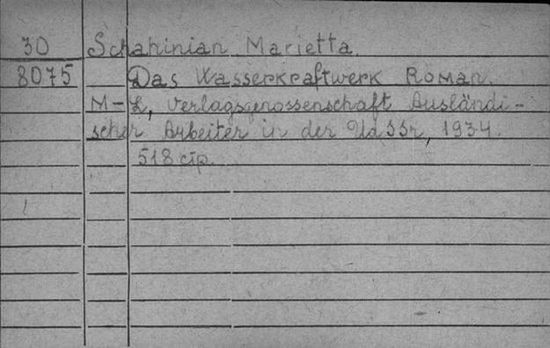 30 Schahinian Marietta.
8075 Das Wasserkraftwerk Roman.
M-L, Verlagsgenossenschaft Ausländi-
scher Arbeiter in der UdSSr, 1934.
518 стр.